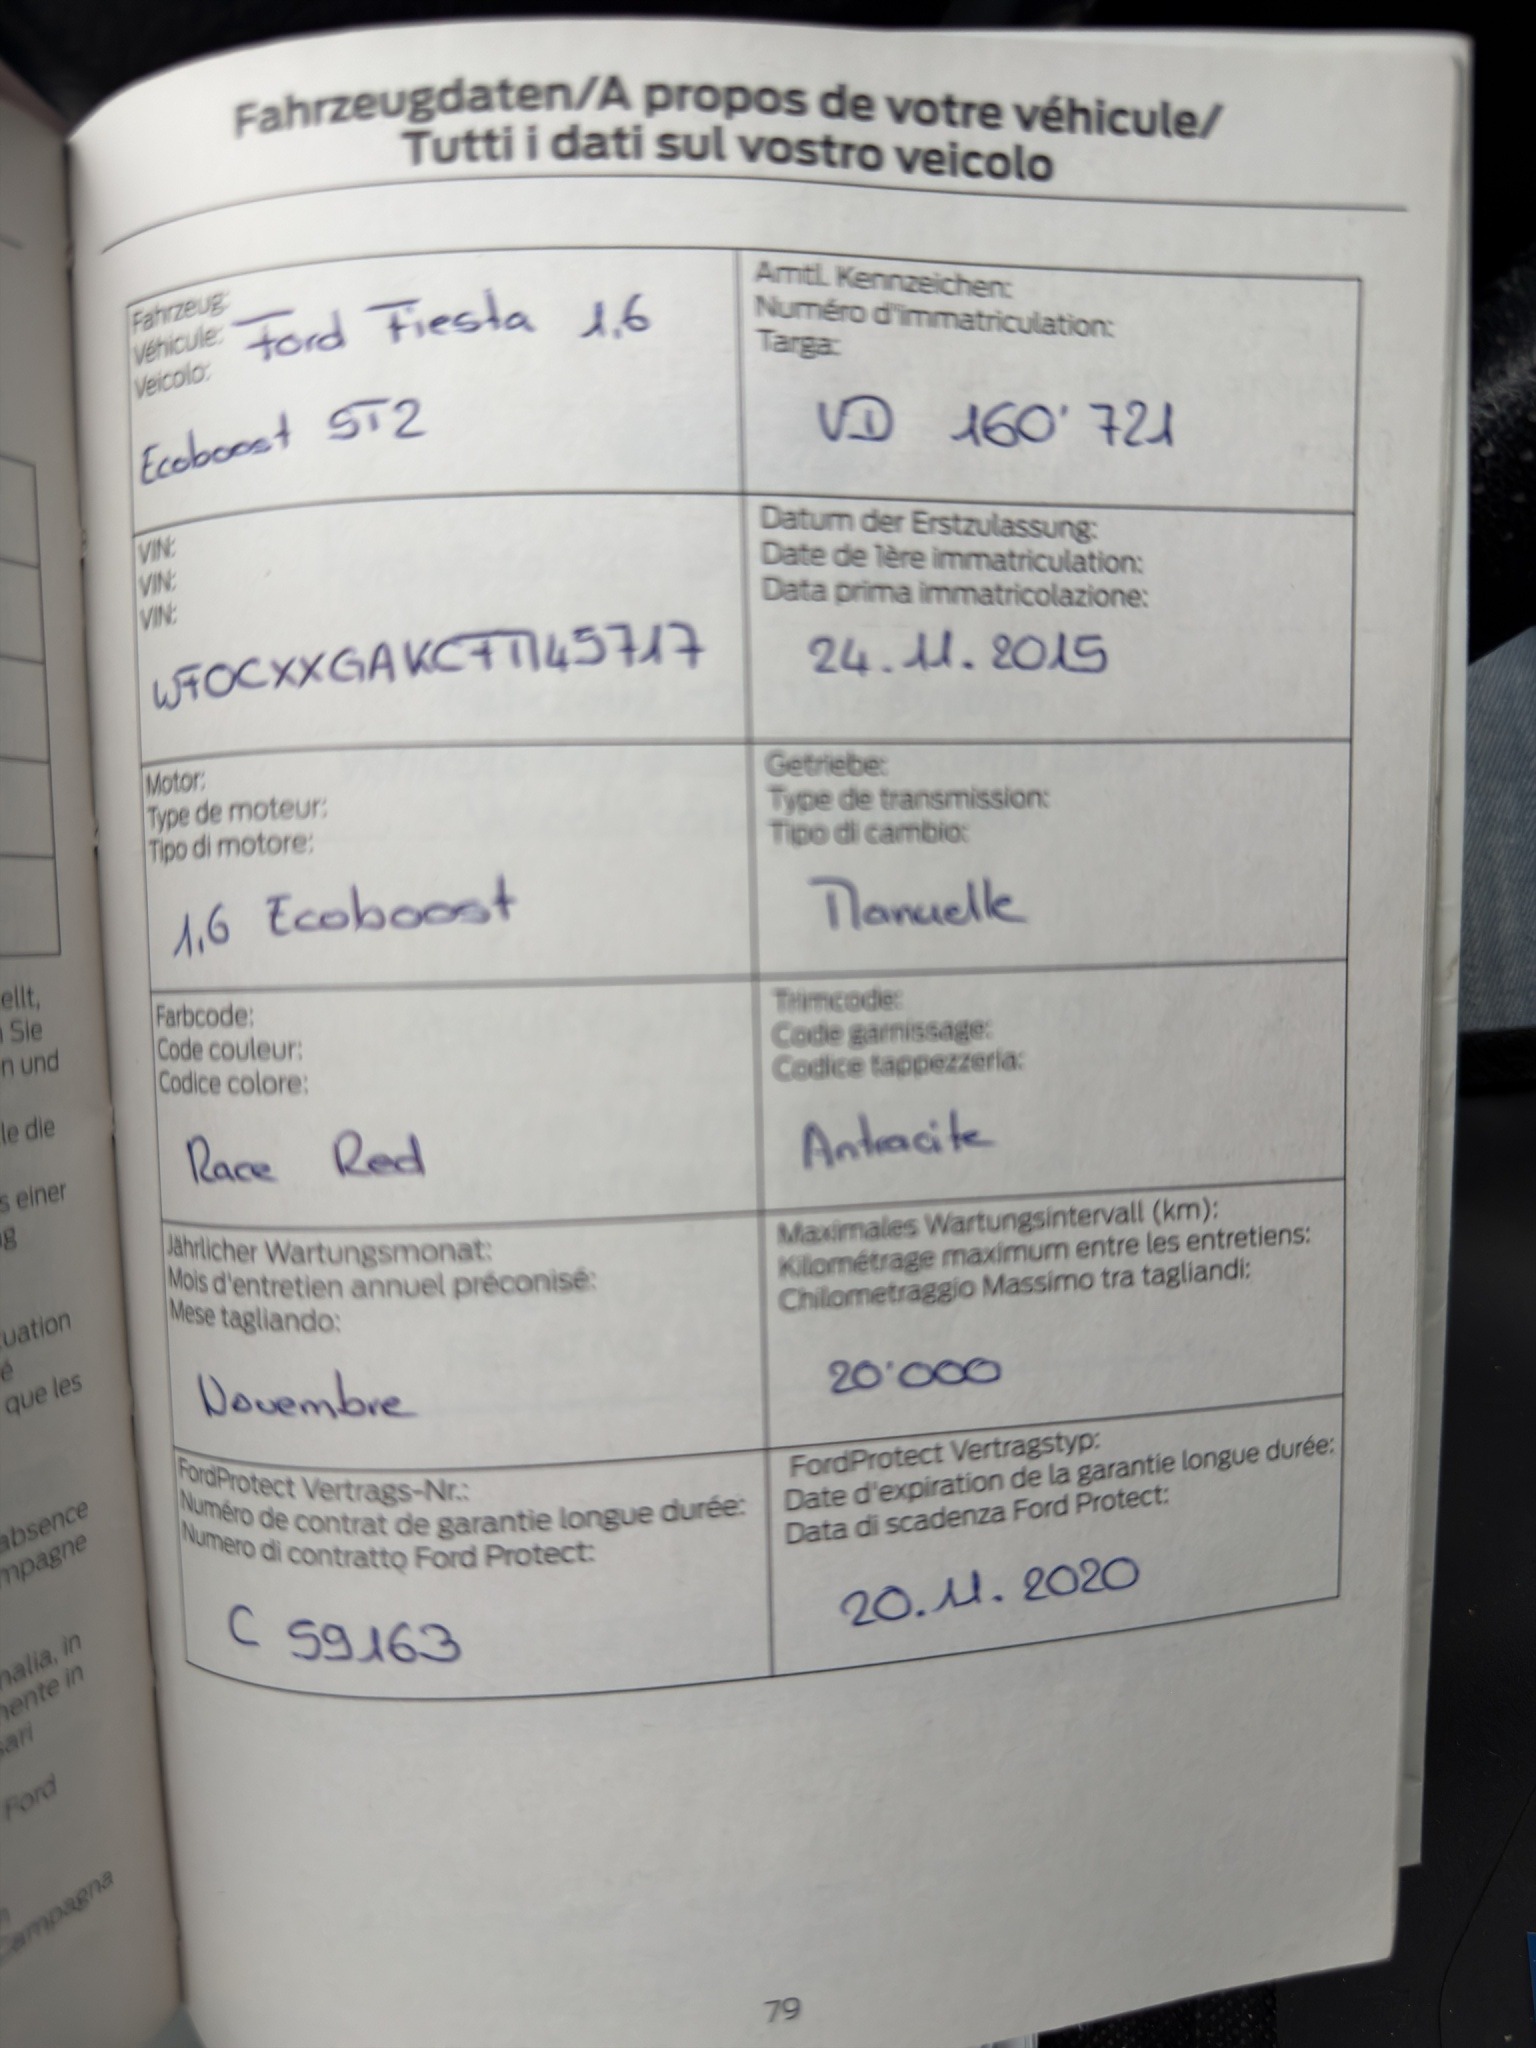 Fahrzeugdaten/A propos de votre véhicule/
Tutti i dati sul vostro veicolo
Fahrzeug:
Véhicule: Ford Fiesta 1,6
Veicolo:
Ecoboost ST2
Amtl. Kennzeichen:
Numéro d'immatriculation:
Targa:
VD 160'721
VIN:
VIN:
VIN:
WF0CXXGAKCFM45717
Datum der Erstzulassung:
Date de 1ère immatriculation:
Data prima immatricolazione:
24.11.2015
Motor:
Type de moteur:
Tipo di motore:
1,6 Ecoboost
Getriebe:
Type de transmission:
Tipo di cambio:
Manuelle
Farbcode:
Code couleur:
Codice colore:
Race Red
Trimcode:
Code garnissage:
Codice tappezzeria:
Antracite
Jährlicher Wartungsmonat:
Mois d'entretien annuel préconisé:
Mese tagliando:
Novembre
Maximales Wartungsintervall (km):
Kilométrage maximum entre les entretiens:
Chilometraggio Massimo tra tagliandi:
20'000
FordProtect Vertrags-Nr.:
Numéro de contrat de garantie longue durée:
Numero di contratto Ford Protect:
C 59163
FordProtect Vertragstyp:
Date d'expiration de la garantie longue durée:
Data di scadenza Ford Protect:
20.11.2020
79
ellt,
Sie
n und
le die
s einer
que les
absence
mpagne
Ford
Campagna